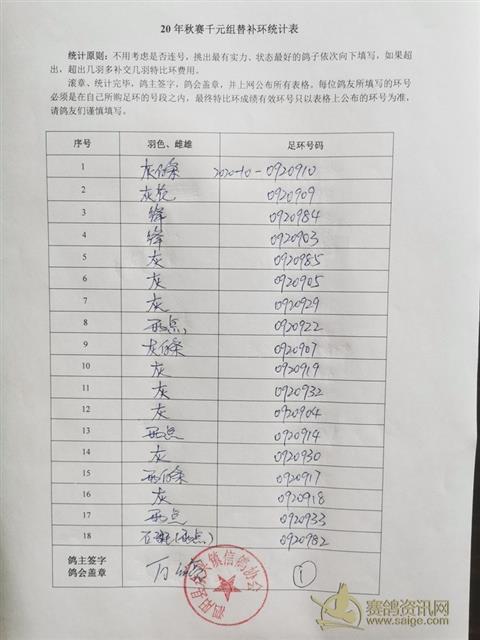 20 年秋赛千元组替补环统计表
统计原则：不用考虑是否连号，挑出最有实力、状态最好的鸽子依次向下填写，如果超
出，超出几羽多补交几羽特比环费用。
滚章、统计完毕，鸽主签字，鸽会盖章，并上网公布所有表格。每位鸽友所填写的环号
必须是在自己所购足环的号段之内，最终特比环成绩有效环号只以表格上公布的环号为准，
请鸽友们谨慎填写。
序号 羽色、雌雄 足环号码
1 灰白条 2020-10-0920910
2 灰花 0920909
3 绛 0920984
4 绛 0920903
5 灰 0920985
6 灰 0920905
7 灰 0920929
8 雨点 0920922
9 灰白条 0920907
10 灰 0920919
11 灰 0920932
12 灰 0920904
13 雨点 0920914
14 灰 0920930
15 雨白条 0920917
16 灰 0920918
17 雨点 0920933
18 石斑(雨点) 0920982
鸽主签字
鸽会盖章
①
镇信鸽协会
赛鸽资讯网
www.saige.com